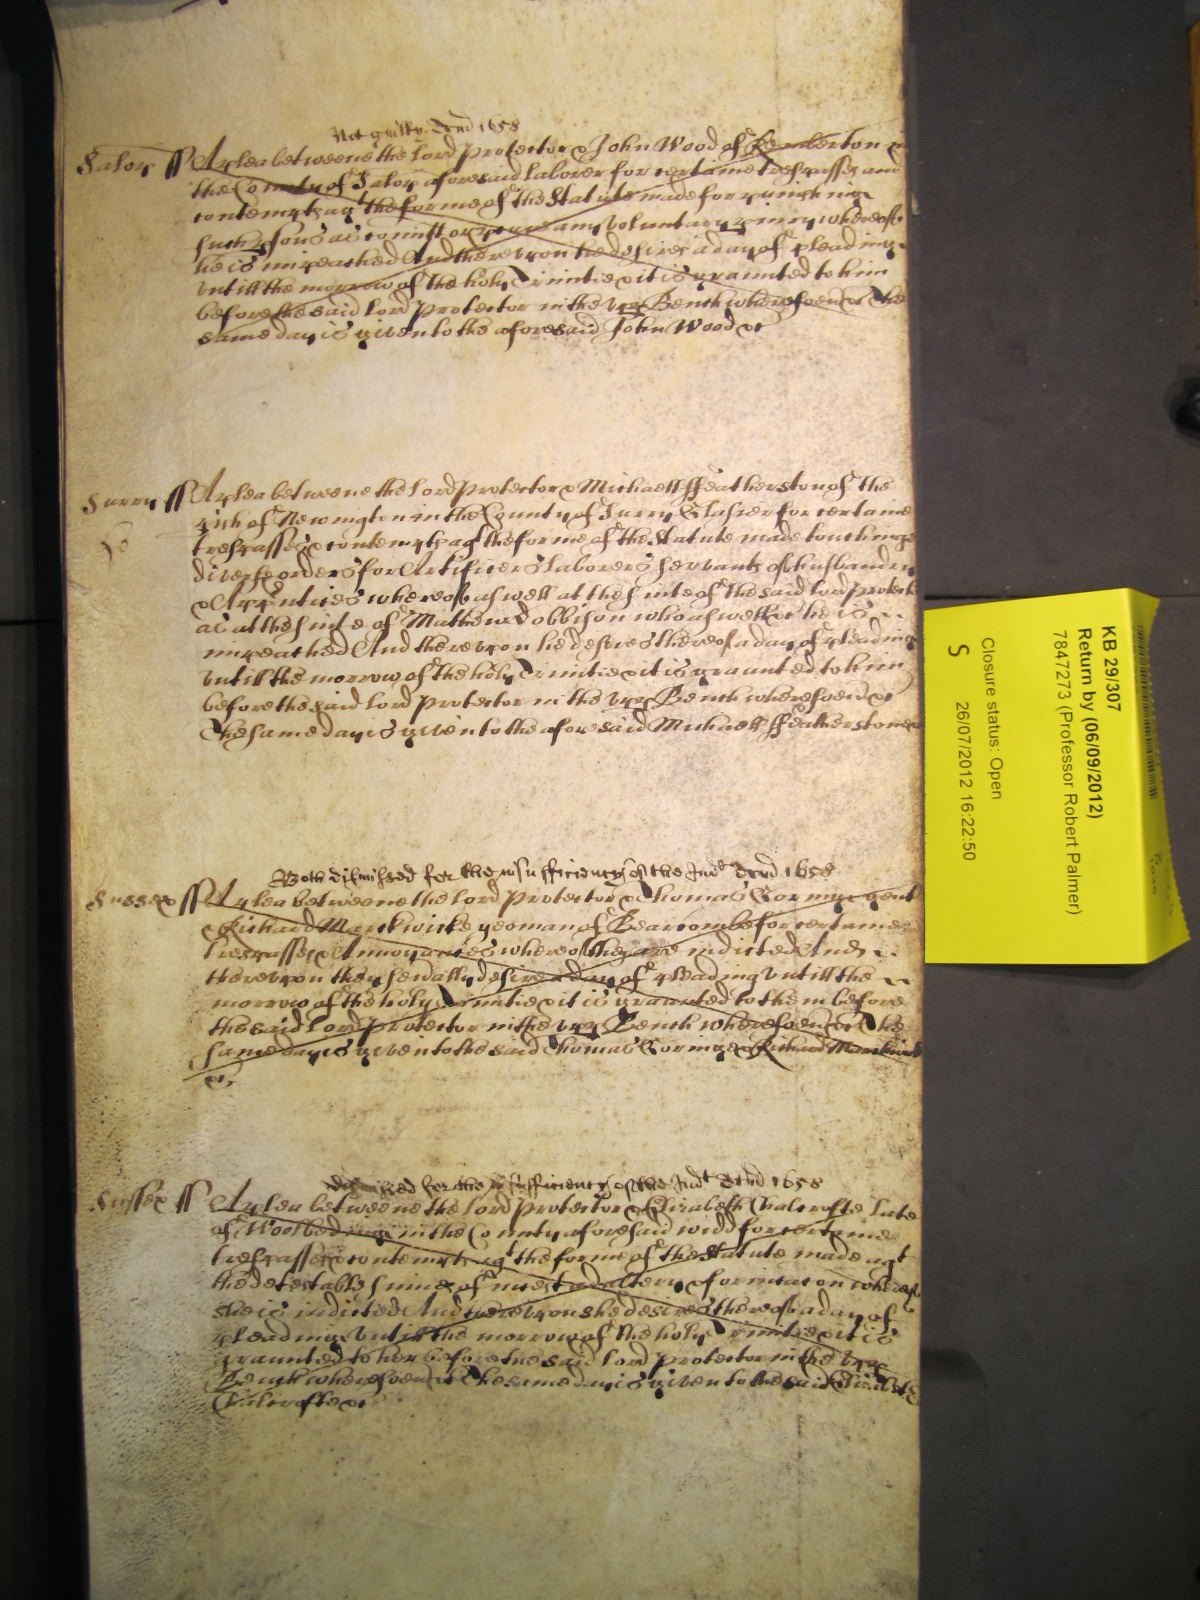 Not guilty Trin 1658
Salop ss A plea betweene the Lord Protector & John Wood of Pemberton in
the County of Salop aforesaid laborer for certaine trespasses and
contempts agt the forme of the Statute made for punishing
such psons as comitt or pcure any voluntary piury whereof
he is impeached And thereupon he desires a day of pleading
untill the morrow of the holy Trinitie & it is graunted to him
before the said Lord Protector in the upp Bench wheresoevr &c The
same day is given to the aforesaid John Wood &c
Surry ss A plea betweene the Lord Protector & Michaell ffeatherston of the
pish of Newington in the County of Surry Glasier for certaine
trespasses & contempts agt the forme of the Statute made touchinge
diverse orders for Artificers Laborers servants of husbandry
& Apprntices whereof as well at the suite of the said Lord Protector
as at the suite of Mathew Dobbison who as well &c he is
impeached And thereupon he desires thereof a day of pleading
untill the morrow of the holy Trinitie & it is graunted to him
before the said Lord Protector in the upp Bench wheresoevr &c
The same day is given to the aforesaid Michaell ffeatherstone
Both dismissed for the insufficiency of the Indt Trin 1658
Sussex ss A plea betweene the Lord Protector & Thomas Goringe gent
& Richard Marckwicke yeoman of for certaine
trespasses & Annoyances whereof they are indicted And
thereupon they sevally desire a day of pleading untill the
morrow of the holy Trinitie & it is graunted to them before
the said Lord Protector in the upp Bench wheresoevr &c The
same day is given to the said Thomas Goringe & Richard Marckwick
&c
dismissed for the insufficiency of the Indt Trin 1658
Sussex ss A plea betweene the Lord Protector & Elizabeth Chalcrofte late
of Woolbedinge in the County aforesaid widd for certaine
trespasses & contempts agt the forme of the Statute made agt
the detestable sinnes of incest adultery & fornicacon whereof
she is indicted And thereupon she desires thereof a day of
pleading untill the morrow of the holy Trinitie & it is
graunted to her before the said Lord Protector in the upp
Bench wheresoevr &c The same day is given to the said Elizabeth
Chalcrofte &c
KB 29/307
Return by (06/09/2012)
7847273 (Professor Robert Palmer)
Closure status: Open
S 26/07/2012 16:22:50